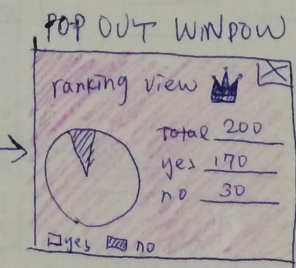 POP OUT WINDOW
ranking view
Total 200
yes 170
no 30
yes no